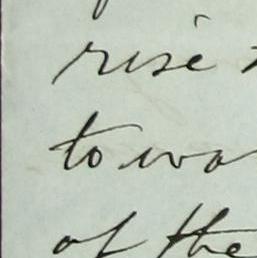 rise
to wa
of the